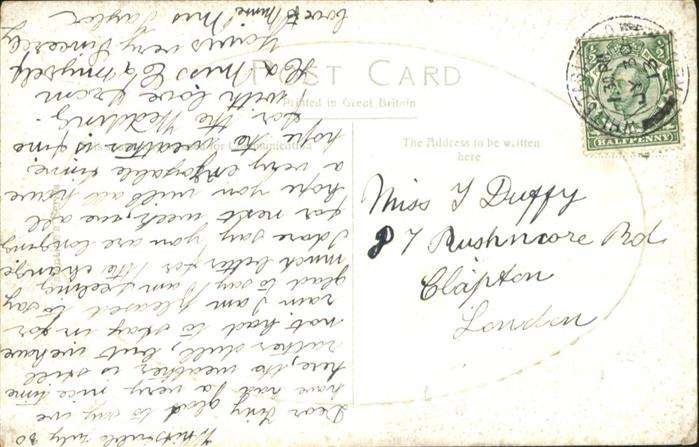 POST CARD
Printed in Great Britain
The Address to be written
here
HALFPENNY
Miss T Duffy
87 Rushmore Rd
Clapton
London
July 30
Dear Tiny glad to say we
have had a very nice time
here, the weather is still
rather dull, but we have
not had to stay in for
rain I am pleased to say
glad to say I am feeling
much better for the change
I dare say you are longing
for next week, we all
hope you will all have
a very enjoyable time
hope the weather is fine
for the Wedding.
with love from
& myself
Yours very Sincerely
Mrs Taylor
love to